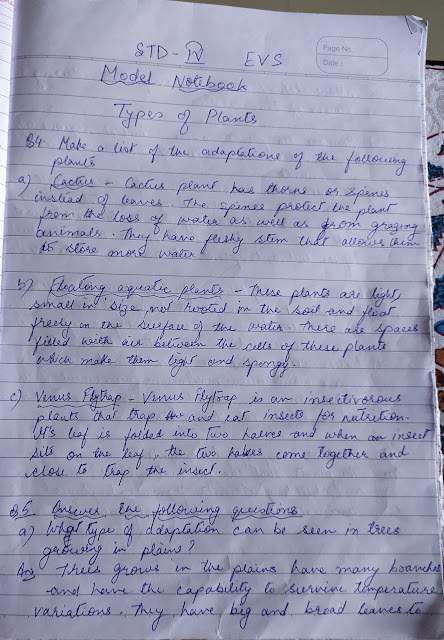 STD - IV EVS
Page No.
Date:
Model Notebook
Types of Plants
Q4. Make a list of the adaptations of the following
plants
a) Cactus - Cactus plant has thorns or spines
instead of leaves. The spines protect the plant
from the loss of water as well as from grazing
animals. They have fleshy stem that allows them
to store more water
b) Floating aquatic plants - These plants are light,
small in size, not rooted in the soil and float
freely on the surface of the water. There are spaces
filled with air between the cells of these plants
which make them light and spongy.
c) Venus Flytrap - Venus Flytrap is an insectivorous
plants that trap and eat insects for nutrition.
It's leaf is folded into two halves and when an insect
sits on the leaf, the two halves come together and
close to trap the insect.
Q.5 Answer the following questions
a) What type of adaptation can be seen in trees
growing in plains?
Ans Trees grows in the plains have many branches
and have the capability to survive temperature
variations. They have big and broad leaves to